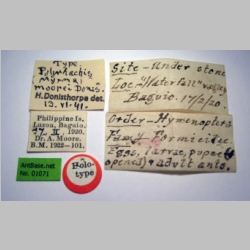 Type.
Polyrhachis
Myrma
moorei Donis.
H. Donisthorpe det.
13. VI. 41.
Philippine Is.
Luzon, Baguio,
17. II. 1920.
Dr. A. Moore.
B.M. 1922-101.
AntBase.net
No. 01071
Holo-
type
Site - Under stone
Loc. "Waterfall" valley
Baguio. 17/2/20.
Order - Hymenoptera
Famy. Formicidae
Eggs, larvae, pupae
opened) & adult ants.